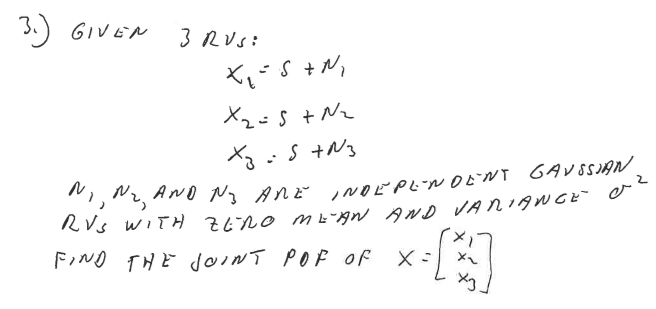 3.) GIVEN 3 RVs:
X₁ = S + N₁
X₂ = S + N₂
X₃ = S + N₃
N₁, N₂, AND N₃ ARE INDEPENDENT GAUSSIAN
RVs WITH ZERO MEAN AND VARIANCE σ²
FIND THE JOINT PDF OF X = [X₁ X₂ X₃]